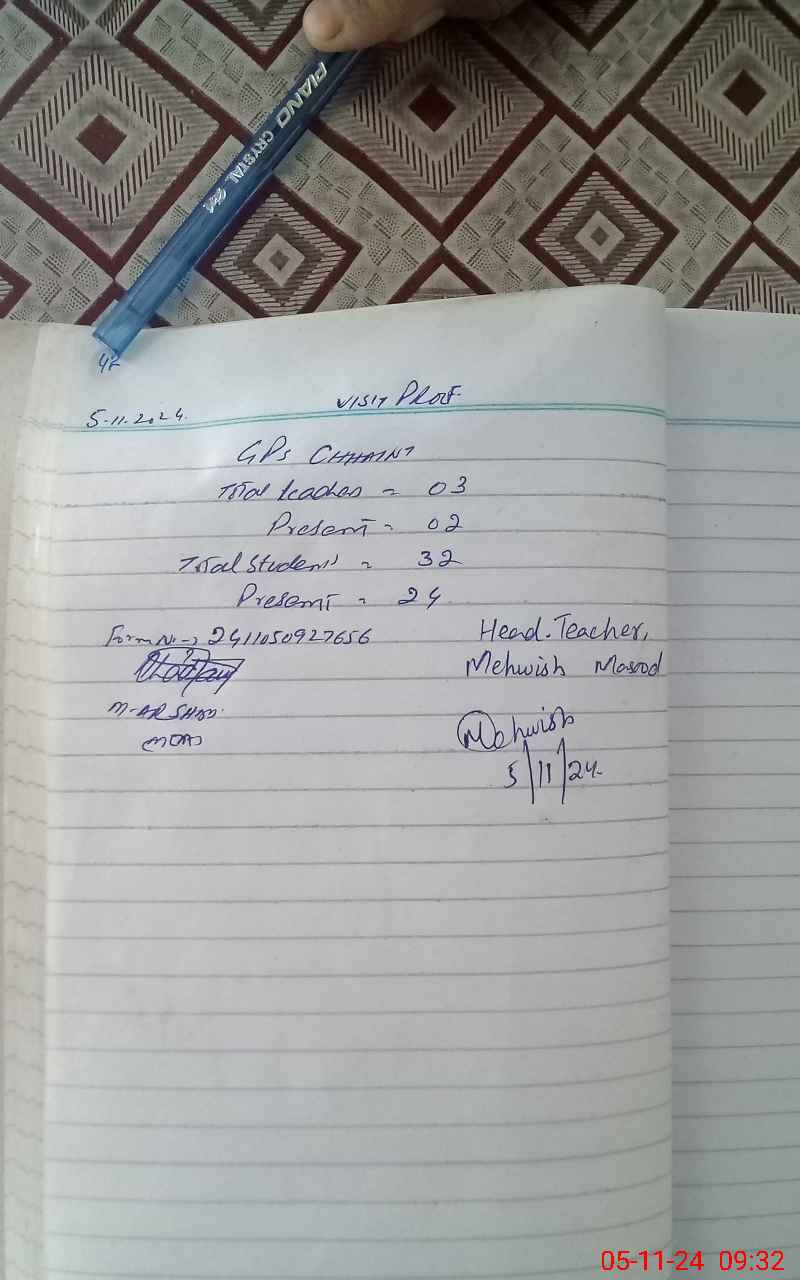 PIANO CRYSTAL gel
42
5-11-2024. VISIT PROOF
GPS CHHAINT
Total teachers = 03
Present = 02
Total Students = 32
Present = 24
Form No → 2411050927656
Head Teacher,
Mehwish Masood
M-ARSHAD
Mehwish
5/11/24
05-11-24 09:32